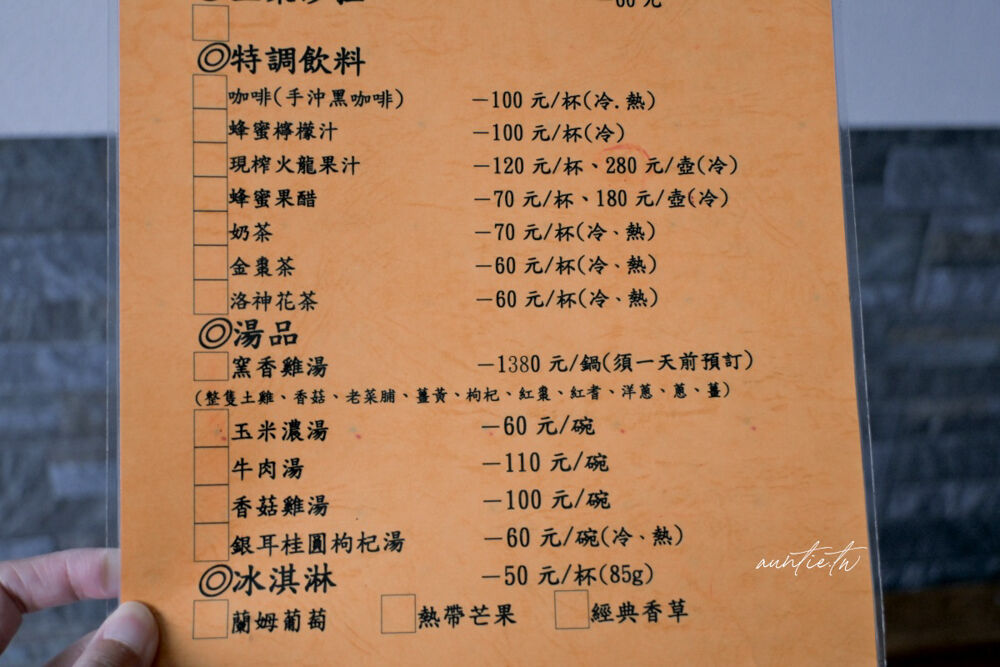 ◎特調飲料
咖啡(手沖黑咖啡) －100 元/杯(冷.熱)
蜂蜜檸檬汁 －100 元/杯(冷)
現榨火龍果汁 －120 元/杯、280 元/壺(冷)
蜂蜜果醋 －70 元/杯、180 元/壺(冷)
奶茶 －70 元/杯(冷、熱)
金棗茶 －60 元/杯(冷、熱)
洛神花茶 －60 元/杯(冷、熱)
◎湯品
窯香雞湯 －1380 元/鍋(須一天前預訂)
(整隻土雞、香菇、老菜脯、薑黃、枸杞、紅棗、紅耆、洋蔥、蔥、薑)
玉米濃湯 －60 元/碗
牛肉湯 －110 元/碗
香菇雞湯 －100 元/碗
銀耳桂圓枸杞湯 －60 元/碗(冷、熱)
◎冰淇淋 －50 元/杯(85g)
蘭姆葡萄 熱帶芒果 經典香草
auntie.tw